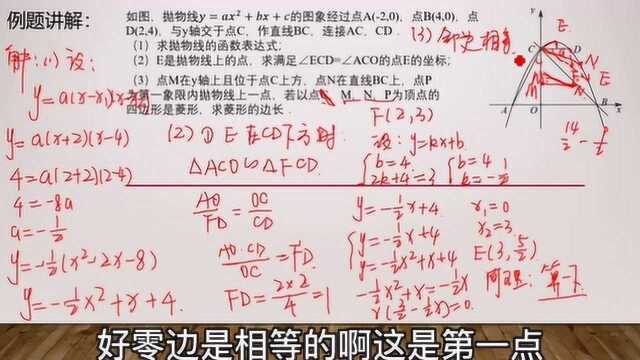 例题讲解：
如图，抛物线y=ax²+bx+c的图象经过点A(-2,0)，点B(4,0)，点
D(2,4)，与y轴交于点C，作直线BC，连接AC、CD．
（1）求抛物线的函数表达式；
（2）E是抛物线上的点，求满足∠ECD=∠ACO的点E的坐标；
（3）点M在y轴上且位于点C上方，点N在直线BC上，点P
为第一象限内抛物线上一点，若以点 M、N、P为顶点的
四边形是菱形，求菱形的边长．
解：(1) 设：
y=a(x+2)(x-4)
4=a(2+2)(2-4)
4=-8a
a=-1/2
y=-1/2(x²-2x-8)
y=-1/2x²+x+4.
(2) ① E在CD下方时
△ACO∽△FCD.
AO/FD=OC/CD
AO·CD/OC=FD.
FD=2×2/4=1
F(2,3)
设：y=kx+b.
b=4
2k+4=3
b=4
k=-1/2
y=-1/2x+4.
y=-1/2x+4.
y=-1/2x²+x+4
-1/2x²+x=-1/2x
x(3/2-1/2x)=0.
x₁=0
x₂=3.
E(3,5/2)
(3)
E
C
D
N
M
E
A
O
B
x
P
14/2-1/2
好零边是相等的啊这是第一点